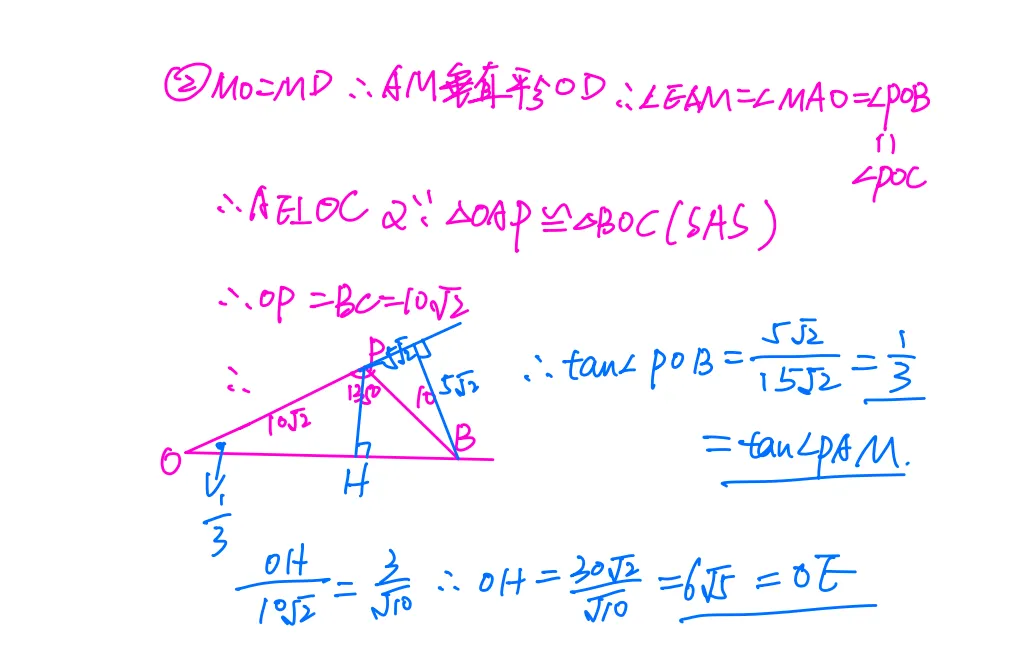 ②MO=MD ∴AM垂直平分OD ∴∠EAM=∠MAO=∠POB
=
∠POC
∴AE⊥OC 又∵ △OAP≌△BOC(SAS)
∴OP=BC=10√2
∴
P 5√2
135° 10 5√2
10√2
O H B
1/3
∴tan∠POB=5√2/15√2=1/3
=tan∠PAM.
OH/10√2=3/√10 ∴OH=30√2/√10=6√5=OE